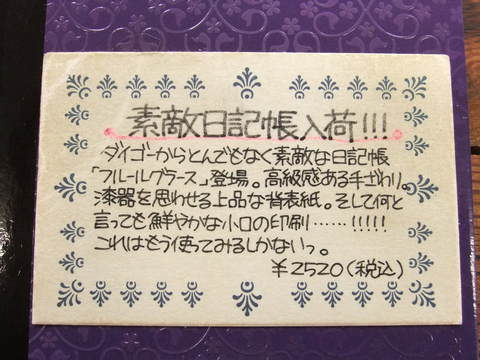 素敵日記帳入荷!!!
ダイゴーからとんでもなく素敵な日記帳
「フルールグラース」登場。高級感ある手ざわり。
漆器を思わせる上品な背表紙。そして何と
言っても鮮やかな小口の印刷……!!!!!
これはもう使ってみるしかないっ。
¥2520(税込)